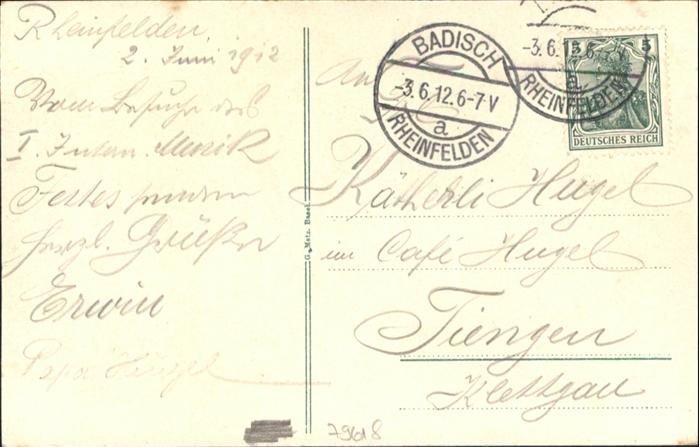 Rheinfelden
2. Juni 1912
Vom Besuche des
I. Intern. Musik
Festes senden
herzl. Grüße
Erwin
Papa Hugel
G. Metz, Basel
BADISCH
-3.6.12.6-7V
a
RHEINFELDEN
-3.6.12.6-
a
RHEINFELDEN
5 5
DEUTSCHES REICH
An
Kätherli Hugel
im Café Hugel
Tiengen
Klettgau
79618